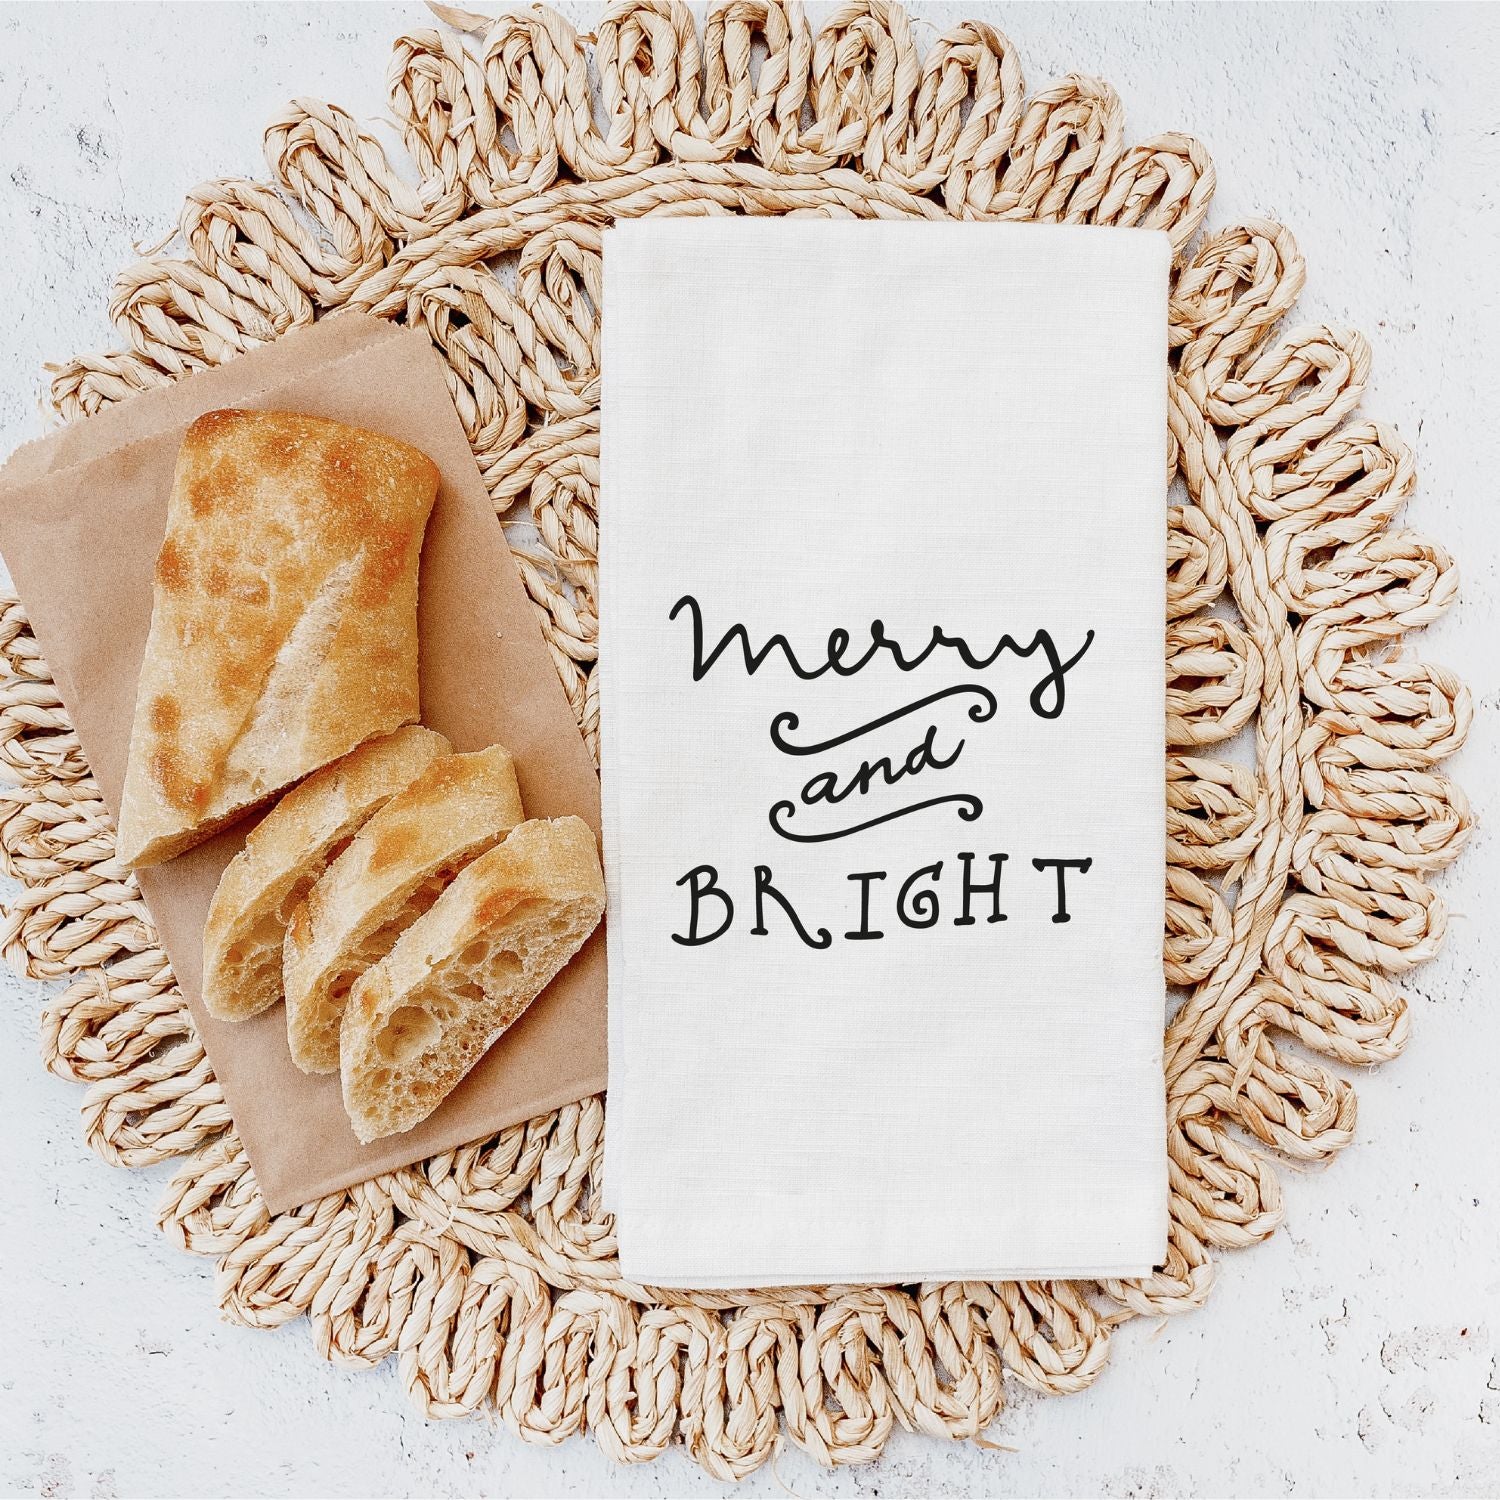 merry
and
BRIGHT